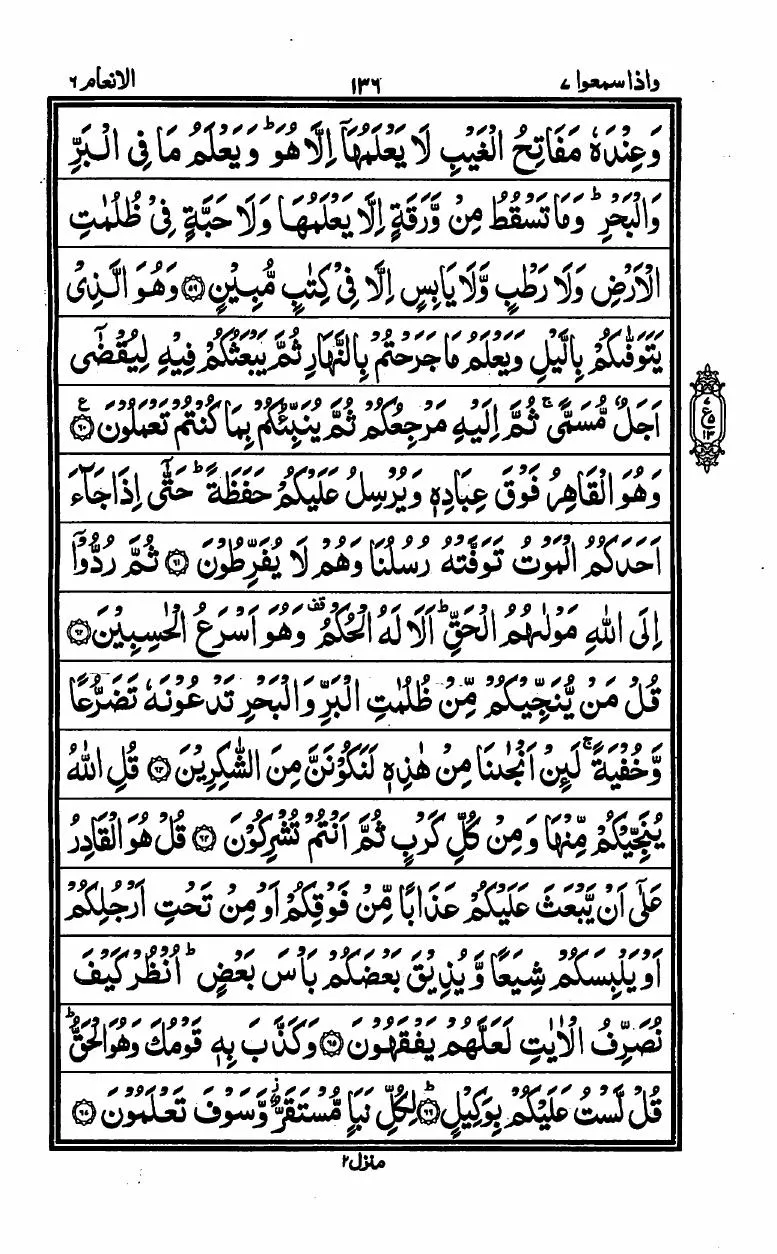 واذا سمعوا ٧
١٣٦
الانعام ٦
وَعِنْدَهٗ مَفَاتِحُ الْغَيْبِ لَا يَعْلَمُهَاۤ اِلَّا هُوَ ؕ وَيَعْلَمُ مَا فِى الْبَرِّ
وَالْبَحْرِ ؕ وَمَا تَسْقُطُ مِنْ وَّرَقَةٍ اِلَّا يَعْلَمُهَا وَلَا حَبَّةٍ فِىْ ظُلُمٰتِ
الْاَرْضِ وَلَا رَطْبٍ وَّلَا يَابِسٍ اِلَّا فِىْ كِتٰبٍ مُّبِيْنٍ ۝٥٩ وَهُوَ الَّذِىْ
يَتَوَفّٰٮكُمْ بِالَّيْلِ وَيَعْلَمُ مَا جَرَحْتُمْ بِالنَّهَارِ ثُمَّ يَبْعَثُكُمْ فِيْهِ لِيُقْضٰٓى
اَجَلٌ مُّسَمًّى ۚ ثُمَّ اِلَيْهِ مَرْجِعُكُمْ ثُمَّ يُنَبِّئُكُمْ بِمَا كُنْتُمْ تَعْمَلُوْنَ ۝٦٠ ع
وَهُوَ الْقَاهِرُ فَوْقَ عِبَادِهٖ وَيُرْسِلُ عَلَيْكُمْ حَفَظَةً ؕ حَتّٰٓى اِذَا جَآءَ
اَحَدَكُمُ الْمَوْتُ تَوَفَّتْهُ رُسُلُنَا وَهُمْ لَا يُفَرِّطُوْنَ ۝٦١ ثُمَّ رُدُّوْۤا
اِلَى اللّٰهِ مَوْلٰٮهُمُ الْحَقِّ ؕ اَلَا لَهُ الْحُكْمُ قف وَهُوَ اَسْرَعُ الْحٰسِبِيْنَ ۝٦٢
قُلْ مَنْ يُّنَجِّيْكُمْ مِّنْ ظُلُمٰتِ الْبَرِّ وَالْبَحْرِ تَدْعُوْنَهٗ تَضَرُّعًا
وَّخُفْيَةً ۚ لَئِنْ اَنْجٰٮنَا مِنْ هٰذِهٖ لَنَكُوْنَنَّ مِنَ الشّٰكِرِيْنَ ۝٦٣ قُلِ اللّٰهُ
يُنَجِّيْكُمْ مِّنْهَا وَمِنْ كُلِّ كَرْبٍ ثُمَّ اَنْتُمْ تُشْرِكُوْنَ ۝٦٤ قُلْ هُوَ الْقَادِرُ
عَلٰٓى اَنْ يَّبْعَثَ عَلَيْكُمْ عَذَابًا مِّنْ فَوْقِكُمْ اَوْ مِنْ تَحْتِ اَرْجُلِكُمْ
اَوْ يَلْبِسَكُمْ شِيَعًا وَّيُذِيْقَ بَعْضَكُمْ بَاْسَ بَعْضٍ ؕ اُنْظُرْ كَيْفَ
نُصَرِّفُ الْاٰيٰتِ لَعَلَّهُمْ يَفْقَهُوْنَ ۝٦٥ وَكَذَّبَ بِهٖ قَوْمُكَ وَهُوَ الْحَقُّ ؕ
قُلْ لَّسْتُ عَلَيْكُمْ بِوَكِيْلٍ ؕ ۝٦٦ لِكُلِّ نَبَاٍ مُّسْتَقَرٌّ ز وَّسَوْفَ تَعْلَمُوْنَ ۝٦٧
٧
ع ٥
١٣
منزل ٢